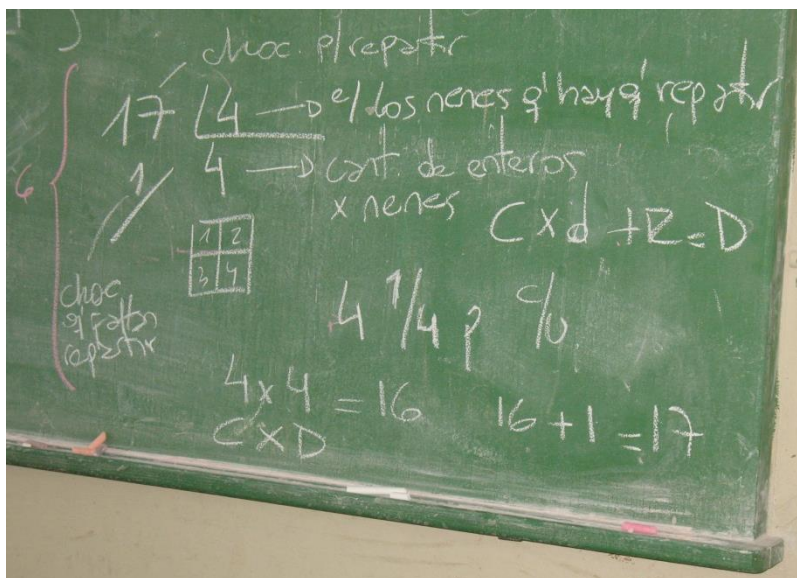 choc. p/repatir
17 | 4 → e/ los nenes q' hay q' repatir
1 4 → cant. de enteros
x nenes
C x d + R = D
1 2
3 4
choc
q' faltan
repatir
4 1/4 p c/u
4 x 4 = 16
C x D
16 + 1 = 17
6